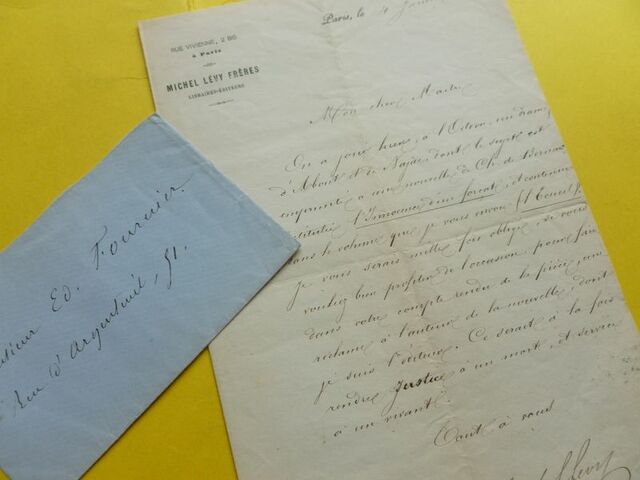 RUE VIVIENNE, 2 BIS
à Paris
MICHEL LÉVY FRÈRES
LIBRAIRES-ÉDITEURS
Paris, le 4
Mon cher Maitre
On a joué hier, à l'Odéon, un drame
d'About et de Najac, dont le sujet est
emprunté à une nouvelle de Ch. de Bernard
intitulée l'Innocence d'un forçat, et contenue
dans le volume que je vous envoie
Je vous serais mille fois obligé, si vous
vouliez bien profiter de l'occasion, pour faire
dans votre compte rendu de la pièce, une
réclame à l'auteur de la nouvelle, dont
je suis l'éditeur. Ce serait à la fois
rendre justice à un mort, et service
à un vivant.
Tout à vous
Lévy
Ed. Fournier
Rue d'Argenteuil, 51.